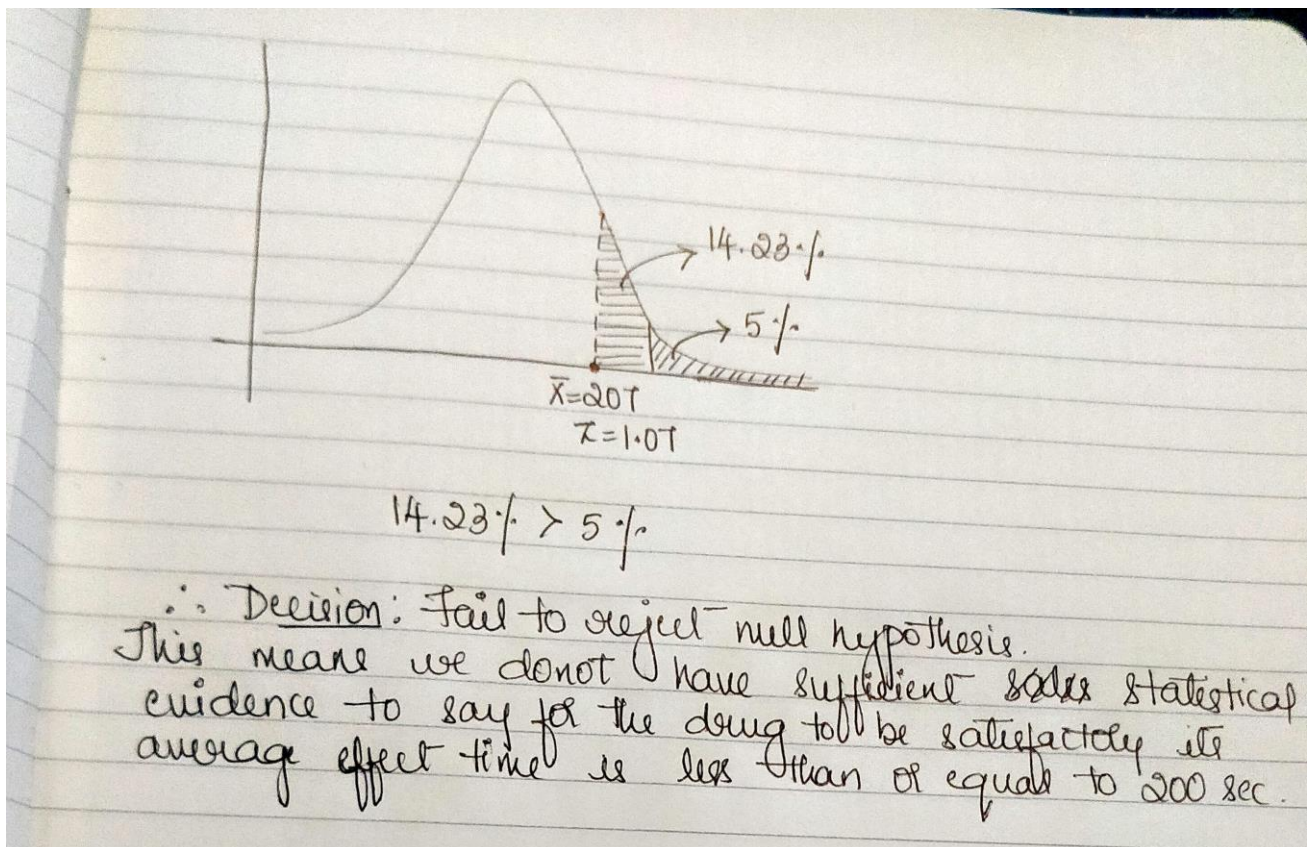 14.23%
5%
X̄=207
Z=1.07
14.23% > 5%
∴ Decision: Fail to reject null hypothesis.
This means we donot have sufficient statistical
evidence to say for the drug to be satisfactoly its
average effect time is less than or equals to 200 sec.